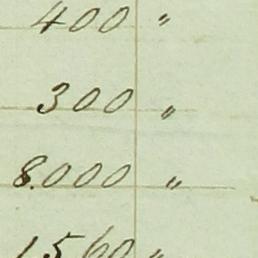 400 "
300 "
8.000 "
1560 "